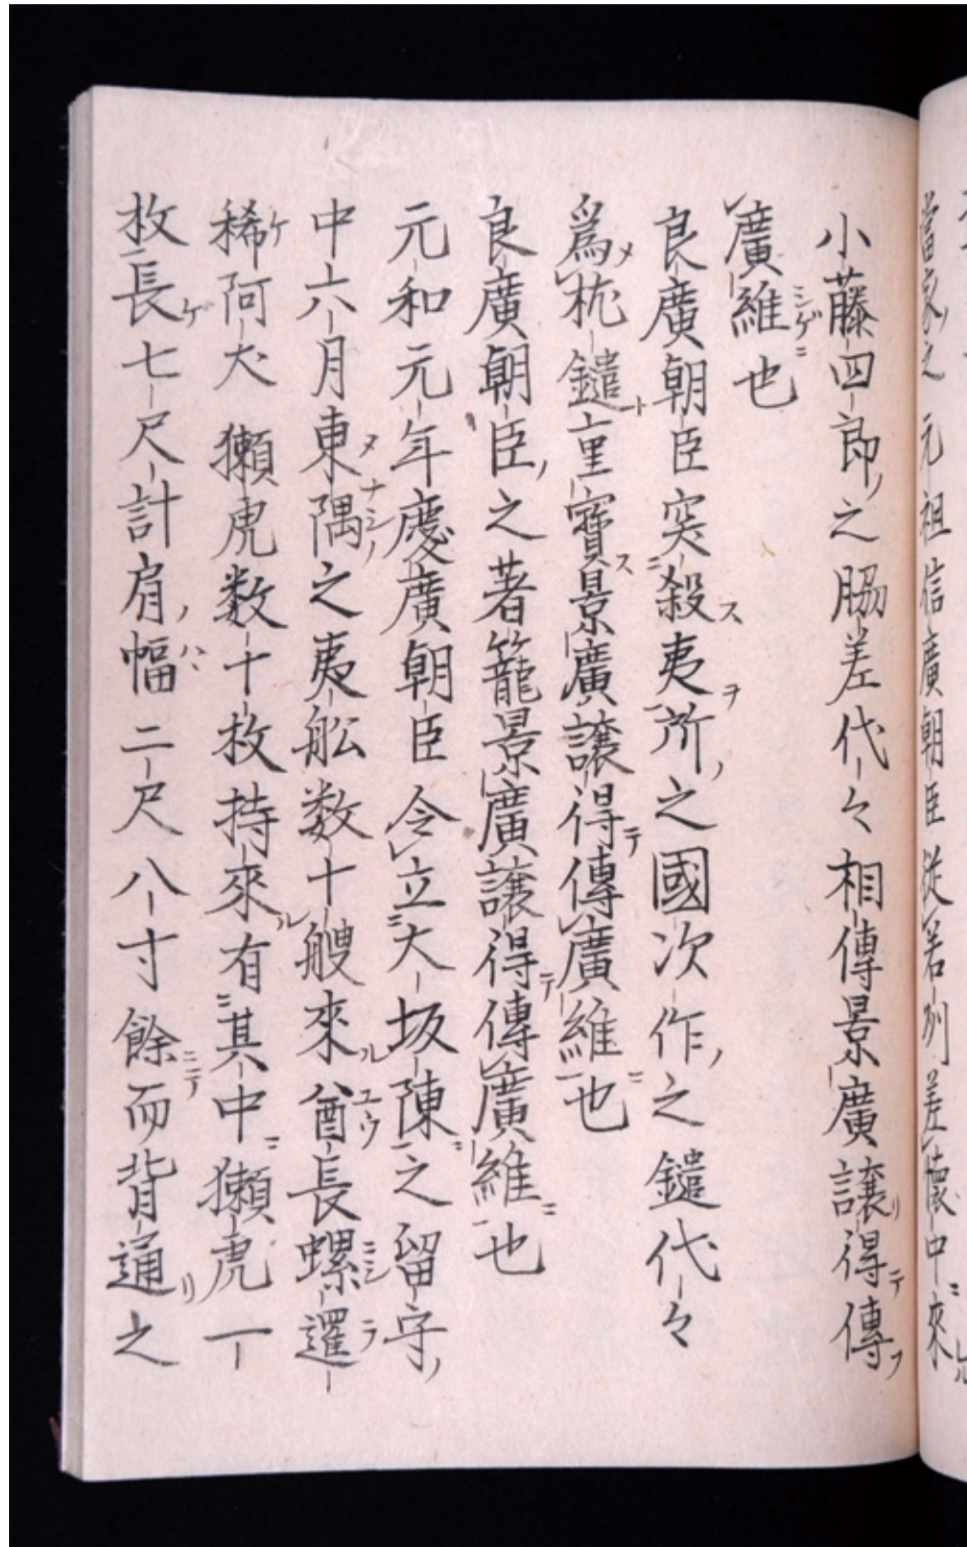 當家之元祖信廣朝臣從若列差懷中來
小藤四郎之脇差代々相傳景廣讓得傳
廣維也
良廣朝臣突殺夷所之國次作之鑓代々
爲枕鑓重寶景廣讓得傳廣維也
良廣朝臣之著籠景廣讓得傳廣維也
元和元年慶廣朝臣令立大坂陳之留守
中六月東隅之夷舩数十艘來酋長螺邏
稀阿犬獺虎数十枚持來有其中獺虎一
枚長七尺計肩幅二尺八寸餘而背通之